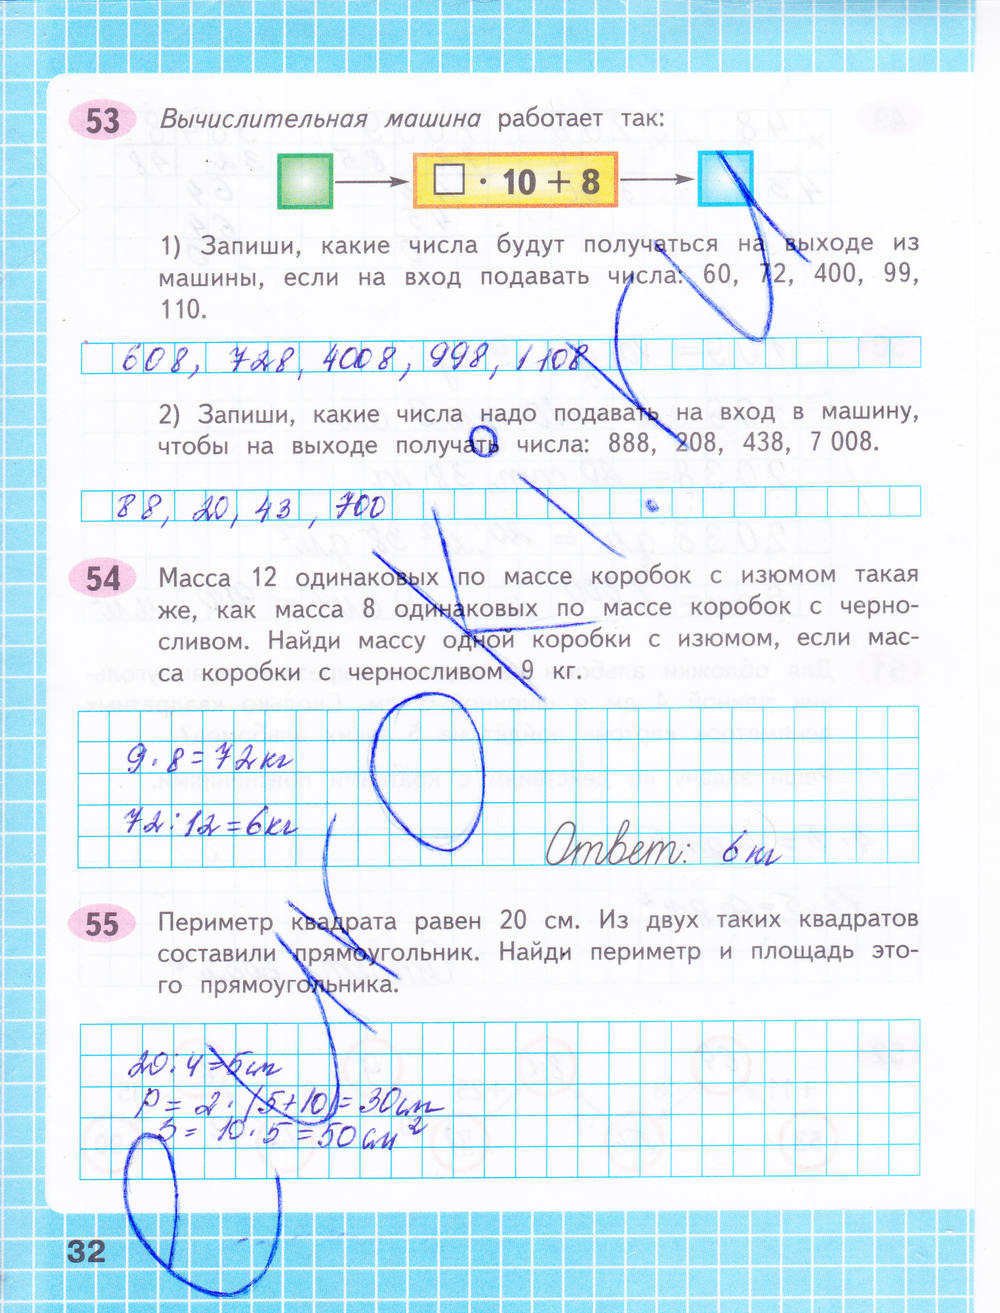 53 Вычислительная машина работает так:
□ · 10 + 8
1) Запиши, какие числа будут получаться на выходе из
машины, если на вход подавать числа: 60, 72, 400, 99,
110.
608, 728, 4008, 998, 1108
2) Запиши, какие числа надо подавать на вход в машину,
чтобы на выходе получать числа: 888, 208, 438, 7 008.
88, 20, 43, 700
54 Масса 12 одинаковых по массе коробок с изюмом такая
же, как масса 8 одинаковых по массе коробок с черно-
сливом. Найди массу одной коробки с изюмом, если мас-
са коробки с черносливом 9 кг.
9 · 8 = 72 кг
72 : 12 = 6 кг
Ответ: 6 кг
55 Периметр квадрата равен 20 см. Из двух таких квадратов
составили прямоугольник. Найди периметр и площадь это-
го прямоугольника.
20 : 4 = 5 см
P = 2 · (5+10) = 30 см
S = 10 · 5 = 50 см²
32